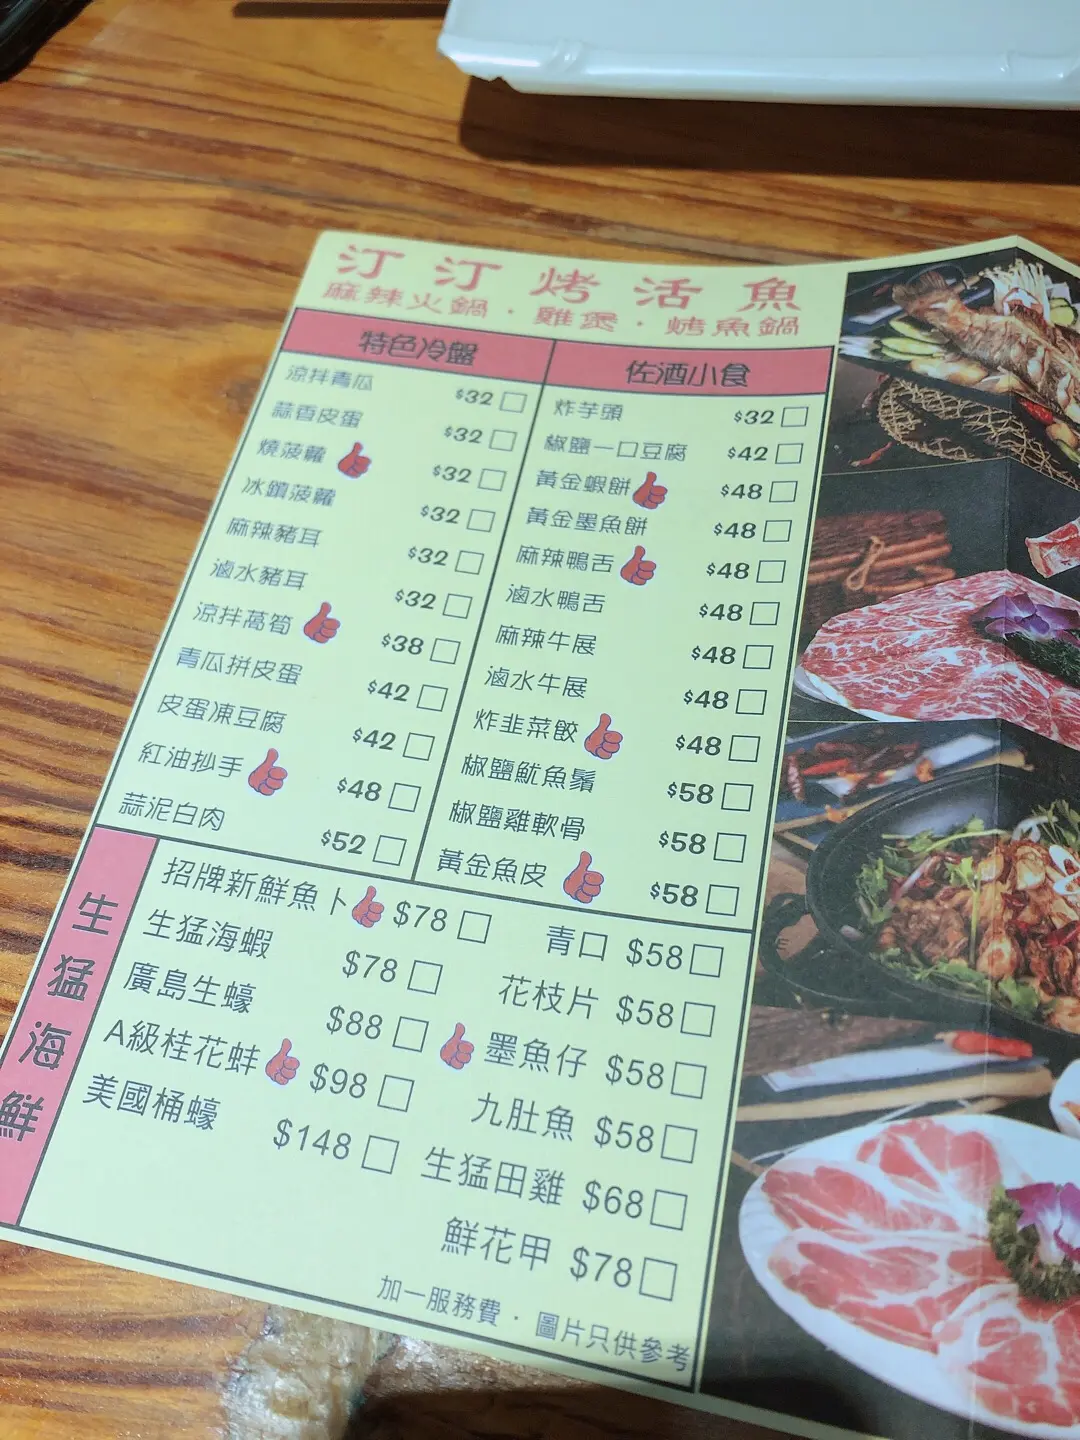 汀汀烤活魚
麻辣火鍋·雞煲·烤魚鍋
特色冷盤
涼拌青瓜 $32
蒜香皮蛋 $32
燒菠蘿 $32
冰鎮菠蘿 $32
麻辣豬耳 $32
滷水豬耳 $32
涼拌萵筍 $38
青瓜拼皮蛋 $42
皮蛋凍豆腐 $42
紅油抄手 $48
蒜泥白肉 $52
佐酒小食
炸芋頭 $32
椒鹽一口豆腐 $42
黃金蝦餅 $48
黃金墨魚餅 $48
麻辣鴨舌 $48
滷水鴨舌 $48
麻辣牛展 $48
滷水牛展 $48
炸韭菜餃 $48
椒鹽魷魚鬚 $58
椒鹽雞軟骨 $58
黃金魚皮 $58
生猛海鮮
招牌新鮮魚卜 $78
生猛海蝦 $78
廣島生蠔 $88
A級桂花蚌 $98
美國桶蠔 $148
青口 $58
花枝片 $58
墨魚仔 $58
九肚魚 $58
生猛田雞 $68
鮮花甲 $78
加一服務費·圖片只供參考